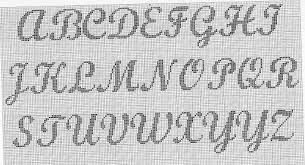 ABCDEFGHI
JKLMNOPQR
STUVWXYYZ